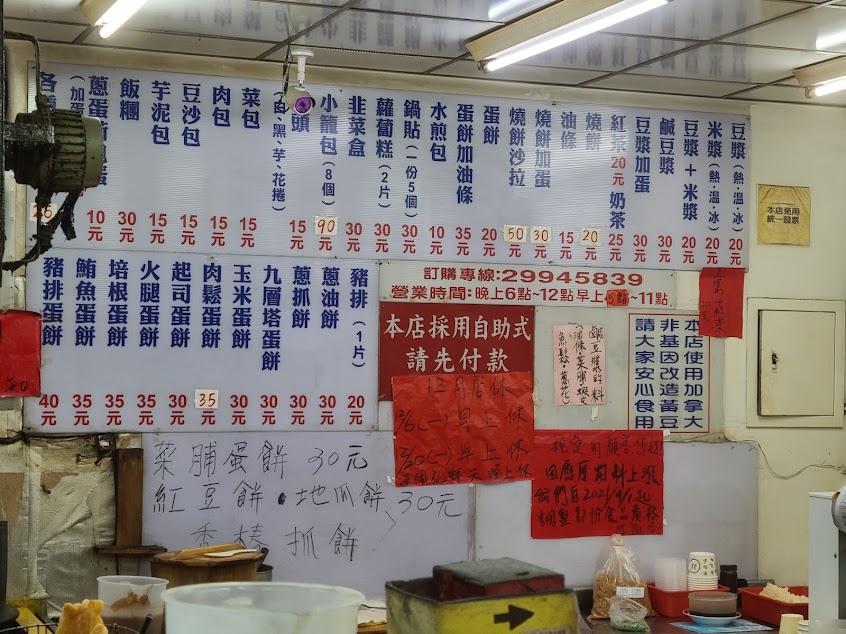 豆漿(熱、溫、冰) 20元
米漿(熱、溫、冰) 20元
豆漿+米漿 20元
鹹豆漿 30元
豆漿加蛋 30元
紅茶20元 奶茶 25元
燒餅 20元
油條 15元
燒餅加蛋 30元
燒餅沙拉 50元
蛋餅 20元
蛋餅加油條 35元
水煎包 10元
鍋貼(一份5個) 30元
蘿蔔糕(2片) 30元
韭菜盒 30元
小籠包(8個) 90元
頭(肉、黑、芋、花捲) 15元
菜包 15元
肉包 15元
豆沙包 15元
芋泥包 15元
飯糰 30元
蔥蛋 10元
各
(加蛋
25
豬排(1片) 20元
蔥油餅 30元
蔥抓餅 30元
九層塔蛋餅 30元
玉米蛋餅 30元
肉鬆蛋餅 35元
起司蛋餅 30元
火腿蛋餅 35元
培根蛋餅 35元
鮪魚蛋餅 35元
豬排蛋餅 40元
訂購專線:29945839
營業時間:晚上6點~12點早上5點~11點
本店採用自助式
請先付款
本店使用加拿大
非基因改造黃豆
請大家安心食用
本店免用
統一發票
鹹豆漿的料
(油條、菜脯、蝦皮
魚鬆、蔥花)
12月店休
12/6(一)早上休
12/20(一)早上休
因應原物料上漲
我們自2021/9/1起
調整部份食品價格
菜脯蛋餅 30元
紅豆餅・地瓜餅 30元
香椿抓餅